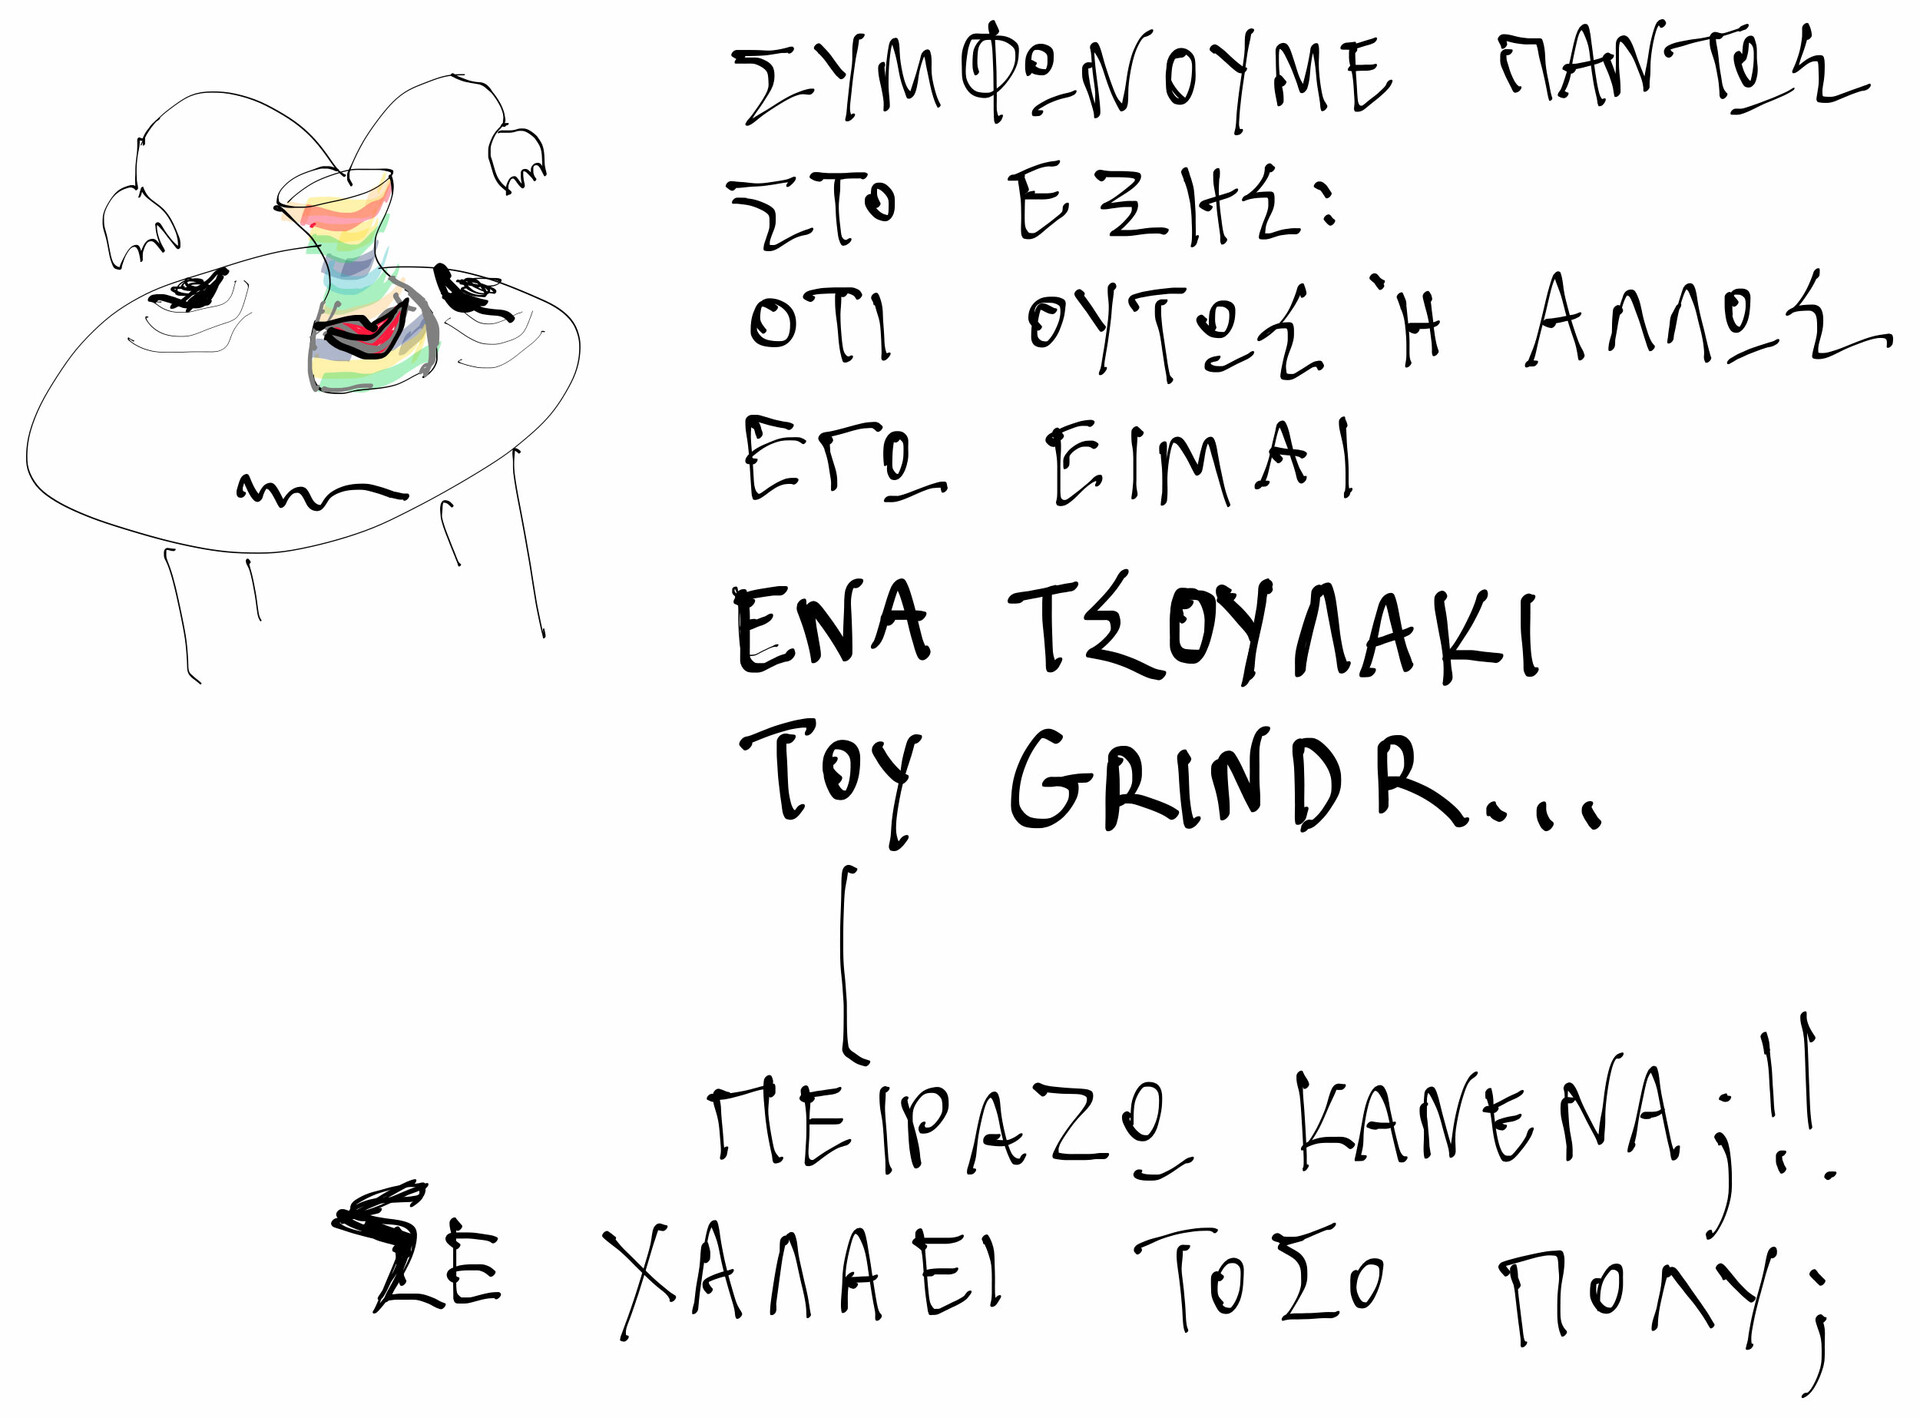 ΣΥΜΦΩΝΟΥΜΕ ΠΑΝΤΩΣ
ΣΤΟ ΕΞΗΣ:
ΟΤΙ ΟΥΤΩΣ Ή ΑΛΛΩΣ
ΕΓΩ ΕΙΜΑΙ
ΕΝΑ ΤΣΟΥΛΑΚΙ
ΤΟΥ GRINDR...
ΠΕΙΡΑΖΩ ΚΑΝΕΝΑ;!!
ΣΕ ΧΑΛΑΕΙ ΤΟΣΟ ΠΟΛΥ;